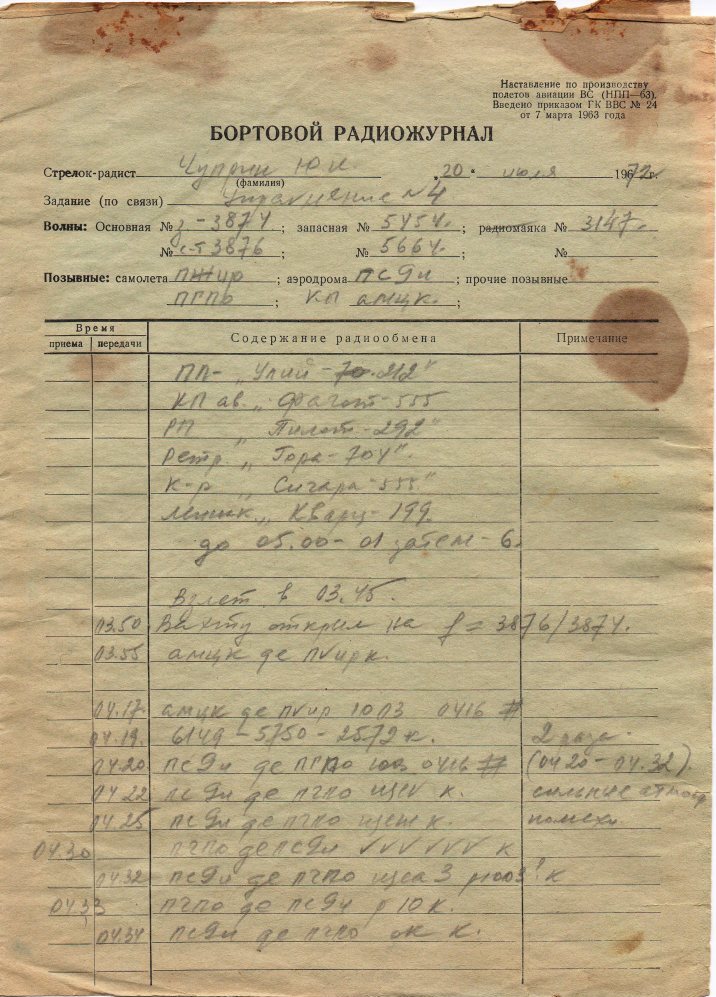 Наставление по производству
полетов авиации ВС (НПП—63).
Введено приказом ГК ВВС № 24
от 7 марта 1963 года
БОРТОВОЙ РАДИОЖУРНАЛ
Стрелок-радист Чуприн Ю. „20“ июля 1972 г.
(фамилия)
Задание (по связи) Упражнение №4
Волны: Основная № 3874; запасная № 5454; радиомаяка № 3147.
№ 3876; № 5664.; №
Позывные: самолета ; аэродрома псди; прочие позывные
пгпо; КП амцк.;
Время
приема передачи Содержание радиообмена Примечание
ПП- 212"
КП ав. „Фагот-555
РП „Пилот-292"
Ретр. „Гора-704".
К-р „Сигара-555"
„Кварц-199.
до 05.00-01 затем-6.
Взлет в 03.45.
03.50 Вахту открыл на f = 3876/3874.
03.55 амцк де к.
04.17. амцк де 1003 0416
04.19. 6149-5750-2572 к. 2 раза
04.20 псди де пгпо 0416 (0420-04.32).
04.22 псди де пгпо к. сильные
04.25 псди де пгпо к. помехи.
04.30 пгпо де псди vvv vvv к
04.32 псди де пгпо к
04.33 пгпо де псди р 10 к.
04.34 псди де пгпо ок к.